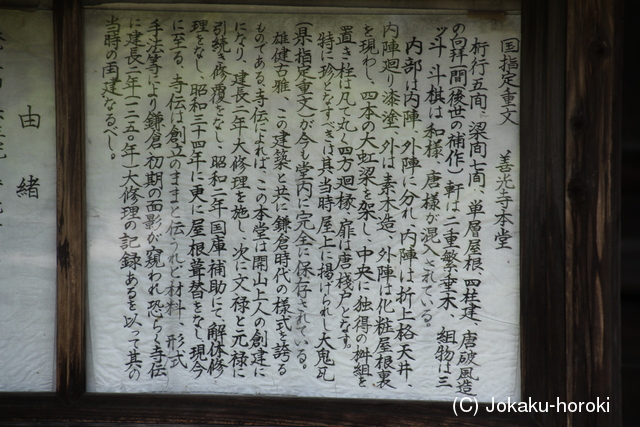 国指定重文　善光寺本堂
桁行五間、梁間七間、単層屋根、四柱建、唐破風造
の向拝間(後世の補作)軒は二重繁垂木、組物は三
ッ斗、斗栱は和様、唐様が混入されている。
内部は内陣、外陣に分れ、内陣は折上格天井、
内陣廻り漆塗、外は素木造、外陣は化粧屋根裏
を現わし、四本の大虹梁を架し、中央に独得の桝組を
置き柱は凡て丸、四方廻椽、扉は唐棧戸となす。
特に珍となすべきは其当時屋上に揚げられし大鬼瓦
(県指定重文)が今も堂内に完全に保存されている。
雄健古雅、この建築と共に鎌倉時代の様式を誇る
ものである。寺伝によれば、この本堂は開山上人の創建に
になり、建長二年大修理を施し、次に文禄と元禄に
引続き修覆をなし、昭和二年国庫補助にて、解体修
理をなし、昭和三十四年に更に屋根葺替をなし現今
に至る。寺伝は創立のままと伝うれど材料、形式
手法等により鎌倉初期の面影が窺われ恐らく寺伝
に建長二年(一二五〇年)大修理の記録あるを以って其の
当時の再建なるべし。
由緒
(C) Jokaku-horoki